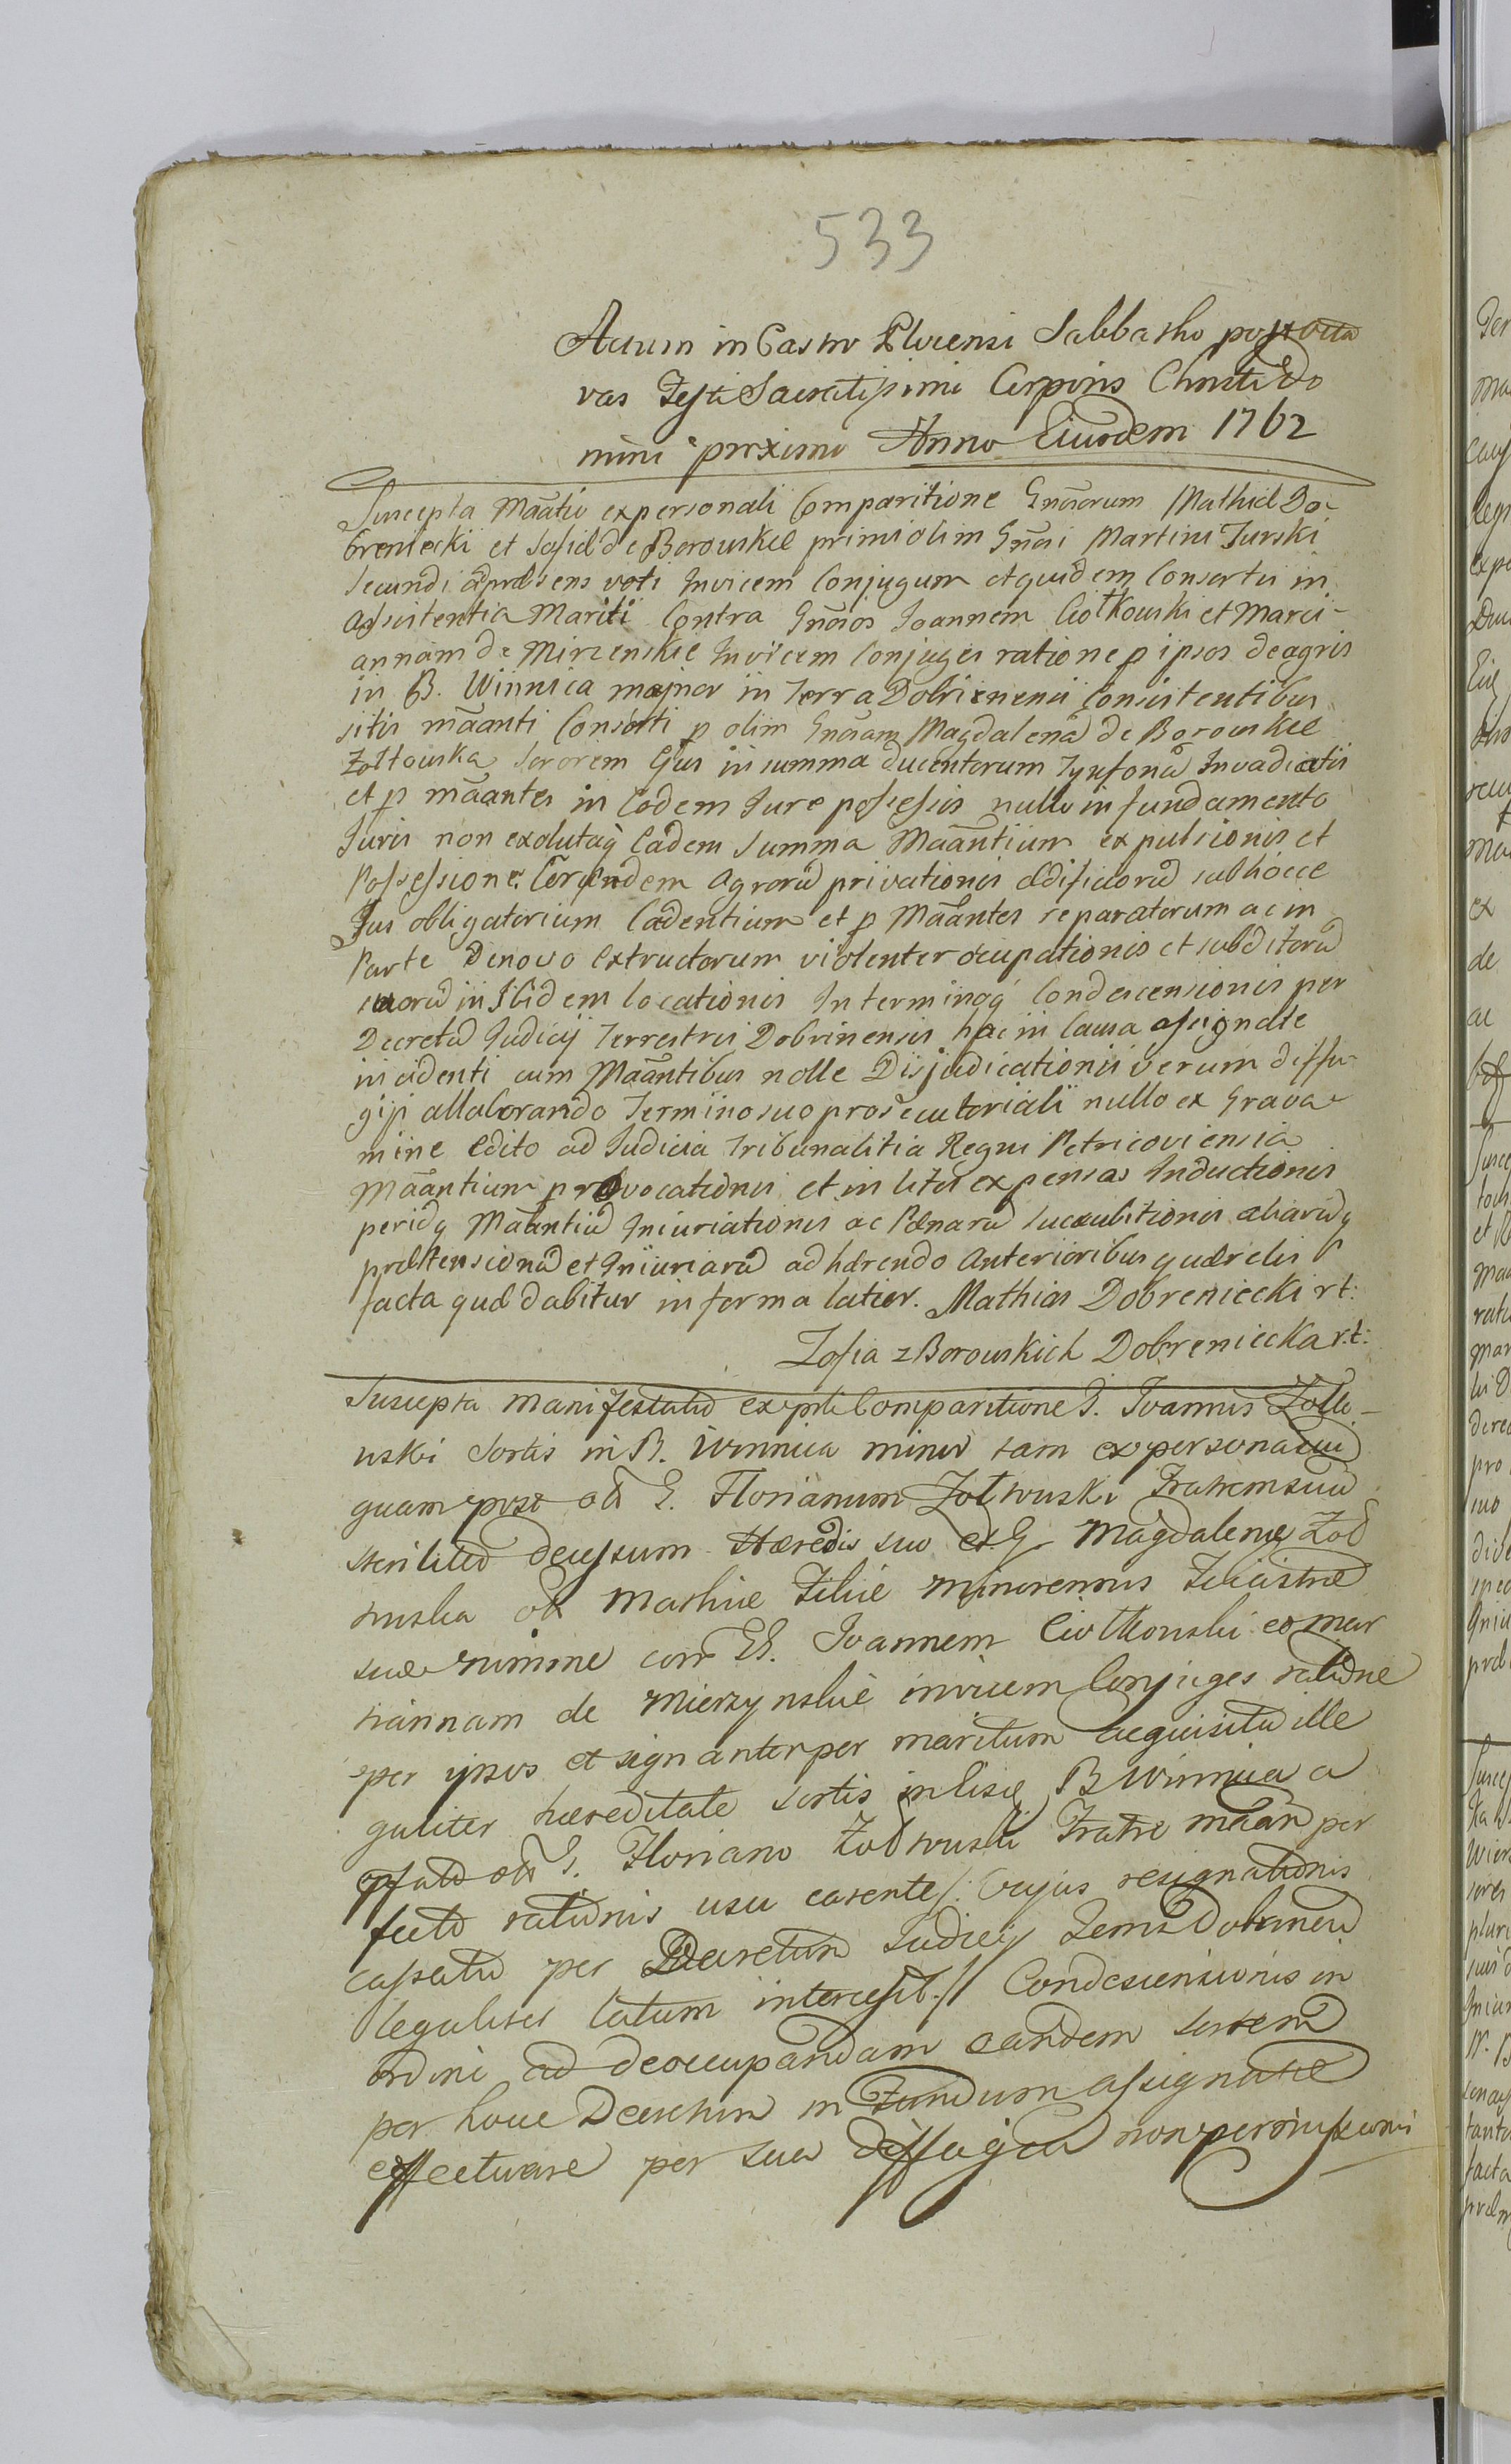 533
Actum in Castro Plocensi Sabbatho post octa
vas Festi Sacratissimi Corporis Christi Do
mini proximo Anno Eiusdem 1762
Suscepta Maãtio ex personali Comparitione Gnãorum Mathiæ Do-
breniecki et Sofiæ de Borowskie primi olim Gnãi Martini Turski
secundi adpræsens voti Invicem Conjugum et quidem Consortis in
Assistentia Mariti Contra Gnãos Joannem Ciołkowski et Mari-
annam de Mirzenskie Invicem Conjuges ratione p ipsos de agris
in B. Winnica major in Terra Dobrinensi Consistentibus
sitis mãanti Consorti p olim Gnãam Magdalenã de Borowskie
Zołtowska Sororem Ejus in summa ducentorum Tynfonũ Invadiatis
et p mãantes in Eodem Jure possessis nullo in fundamento
Juris non exolutaq Eadem summa Maãntium expulsionis et
Possessione Eorundem Agrorũ privationis ædificiorũ sub hocce
Jus obligatorium Cadentium et p Maãntes reparatorum ac in
Parte Denovo Extructorum violenter ocupationis et subditorũ
suorũ in Ibidem locationis In terminoq Condescensionis per
Decretũ Judicij Terrestris Dobrinensis hac in Causa assignatæ
incidenti cum Maãntibus nolle Disjudicationis verum diffu-
gijs allaborando Termino suo prosecutoriali nullo ex Grava-
mine Edito ad Judicia Tribunalitia Regni Petricoviensia
Maãntium provocationis et in litis expensas Inductionis
peridq Maãntiũ Iniuriationis ac Pænarũ succubitionis aliarũq
prætensionũ et Iniuriarũ adhærendo Anterioribus quærelis p
facta quæ dabitur in forma latior. Mathias Dobreniecki rt:
Zofia z Borowskich Dobreniecka r.t:
Suscepta Manifestatio ex pnli Comparitione G. Joannis Zołto-
wski Sortis in B. Winnica minor tam ex persona sui
quam post olt G. Florianum Zołtowski Fratrem suũ
steriliter decessum Hæredis suo et G Magdalenæ Zoł
towska olt Mathiæ Filiæ Minorennis Filiastræ
suæ nomine con GG. Joannem Ciołkowski et Mar
riannam de Mierzynskie invicem Conjuges ratione
per ipsos et signanter per maritum acquisitæ ille
galiter hæreditate sortis in lisq B Winnica a
pfato olt G. Floriano Zołtowski Fratre mãan per
fecto rationis usu carente /: Cujus resignationis
cassatio per Decretum Judicij Terris Dobrinen
legaliter latum intercessit :/ Condescensionis in
ordine ad deoccupandam eandem sortem
per hocce Decretum in Fundum assignatæ
effectuare per sua diffugia non permissionis